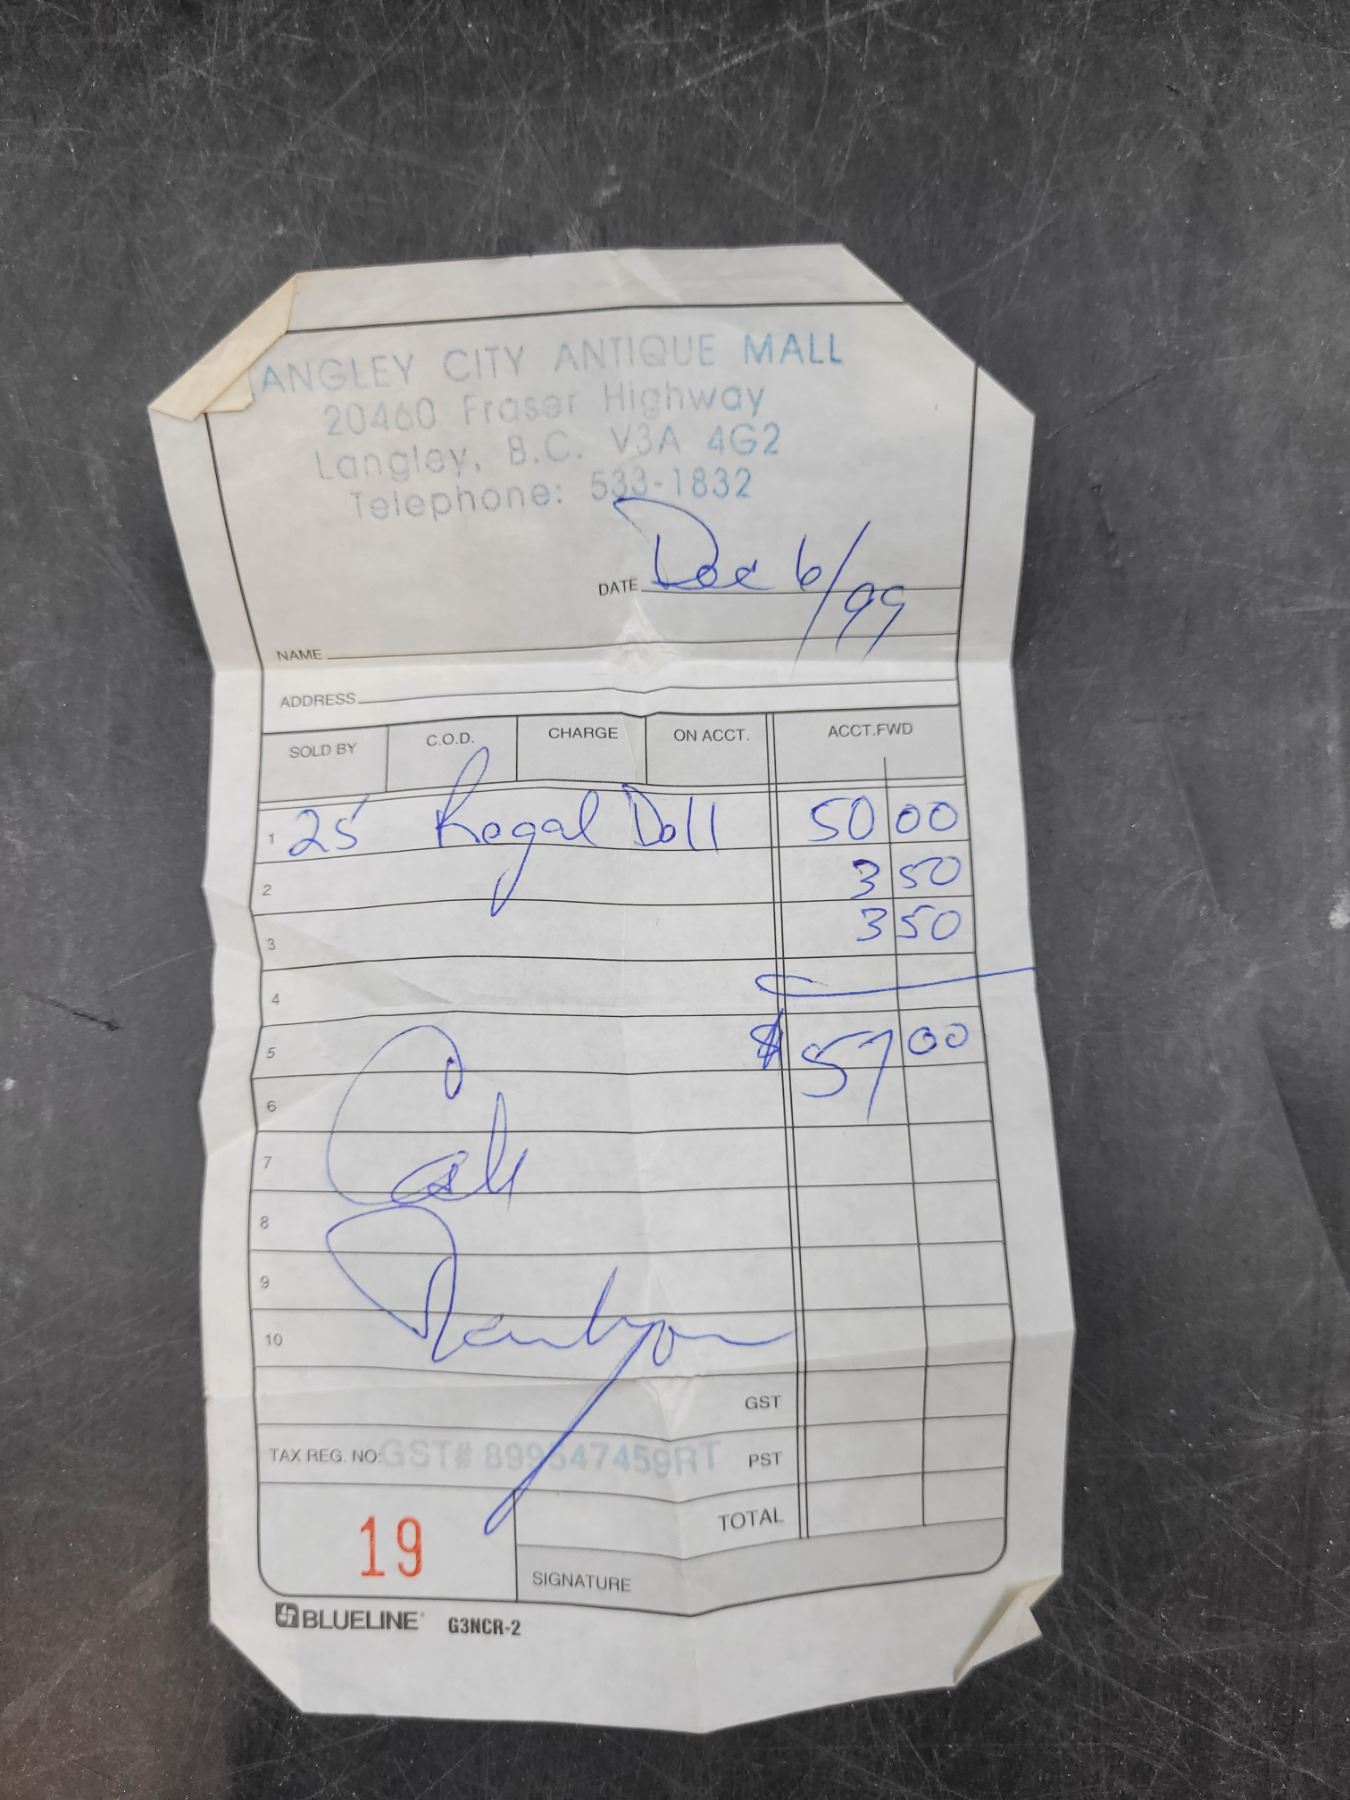 LANGLEY CITY ANTIQUE MALL
20460 Fraser Highway
Langley, B.C. V3A 4G2
Telephone: 533-1832
DATE Dec 6/99
NAME
ADDRESS
SOLD BY C.O.D. CHARGE ON ACCT. ACCT.FWD
1 25" Regal Doll 50 00
2 3 50
3 3 50
4
5 $57 00
6
7 Cash
8
9
10 Thankyou
GST
TAX REG. NO: GST# 899547459RT PST
TOTAL
19
SIGNATURE
BLUELINE G3NCR-2